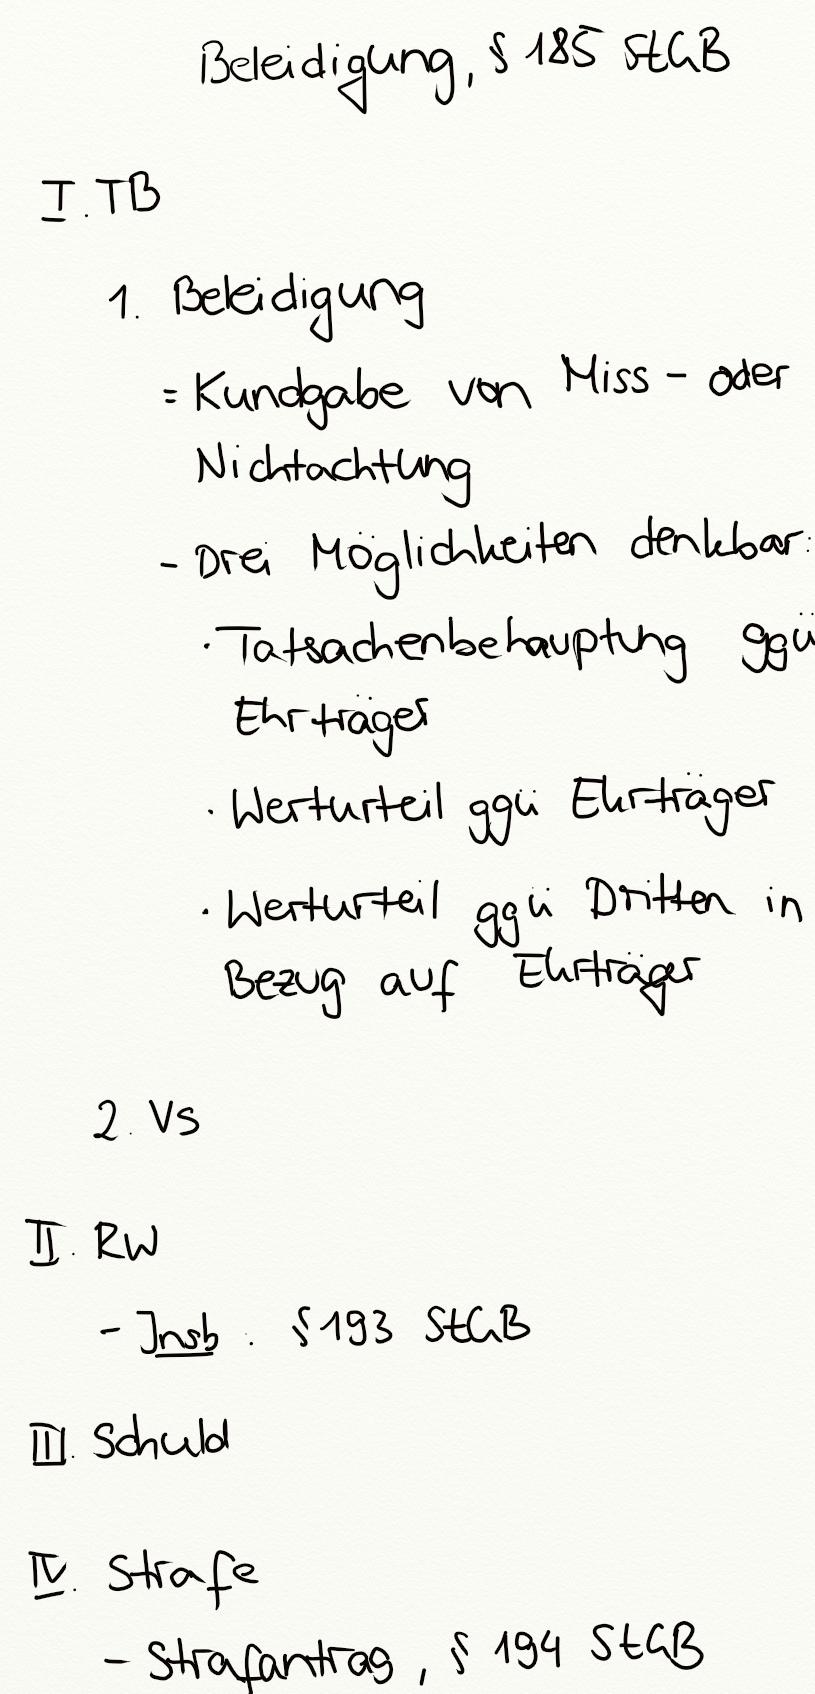 Beleidigung, § 185 StGB
I. TB
1. Beleidigung
= Kundgabe von Miss- oder
Nichtachtung
- Drei Möglichkeiten denkbar:
· Tatsachenbehauptung ggü
Ehrträger
· Werturteil ggü Ehrträger
· Werturteil ggü Dritten in
Bezug auf Ehrträger
2. Vs
II. RW
- Insb. § 193 StGB
III. Schuld
IV. Strafe
- Strafantrag, § 194 StGB